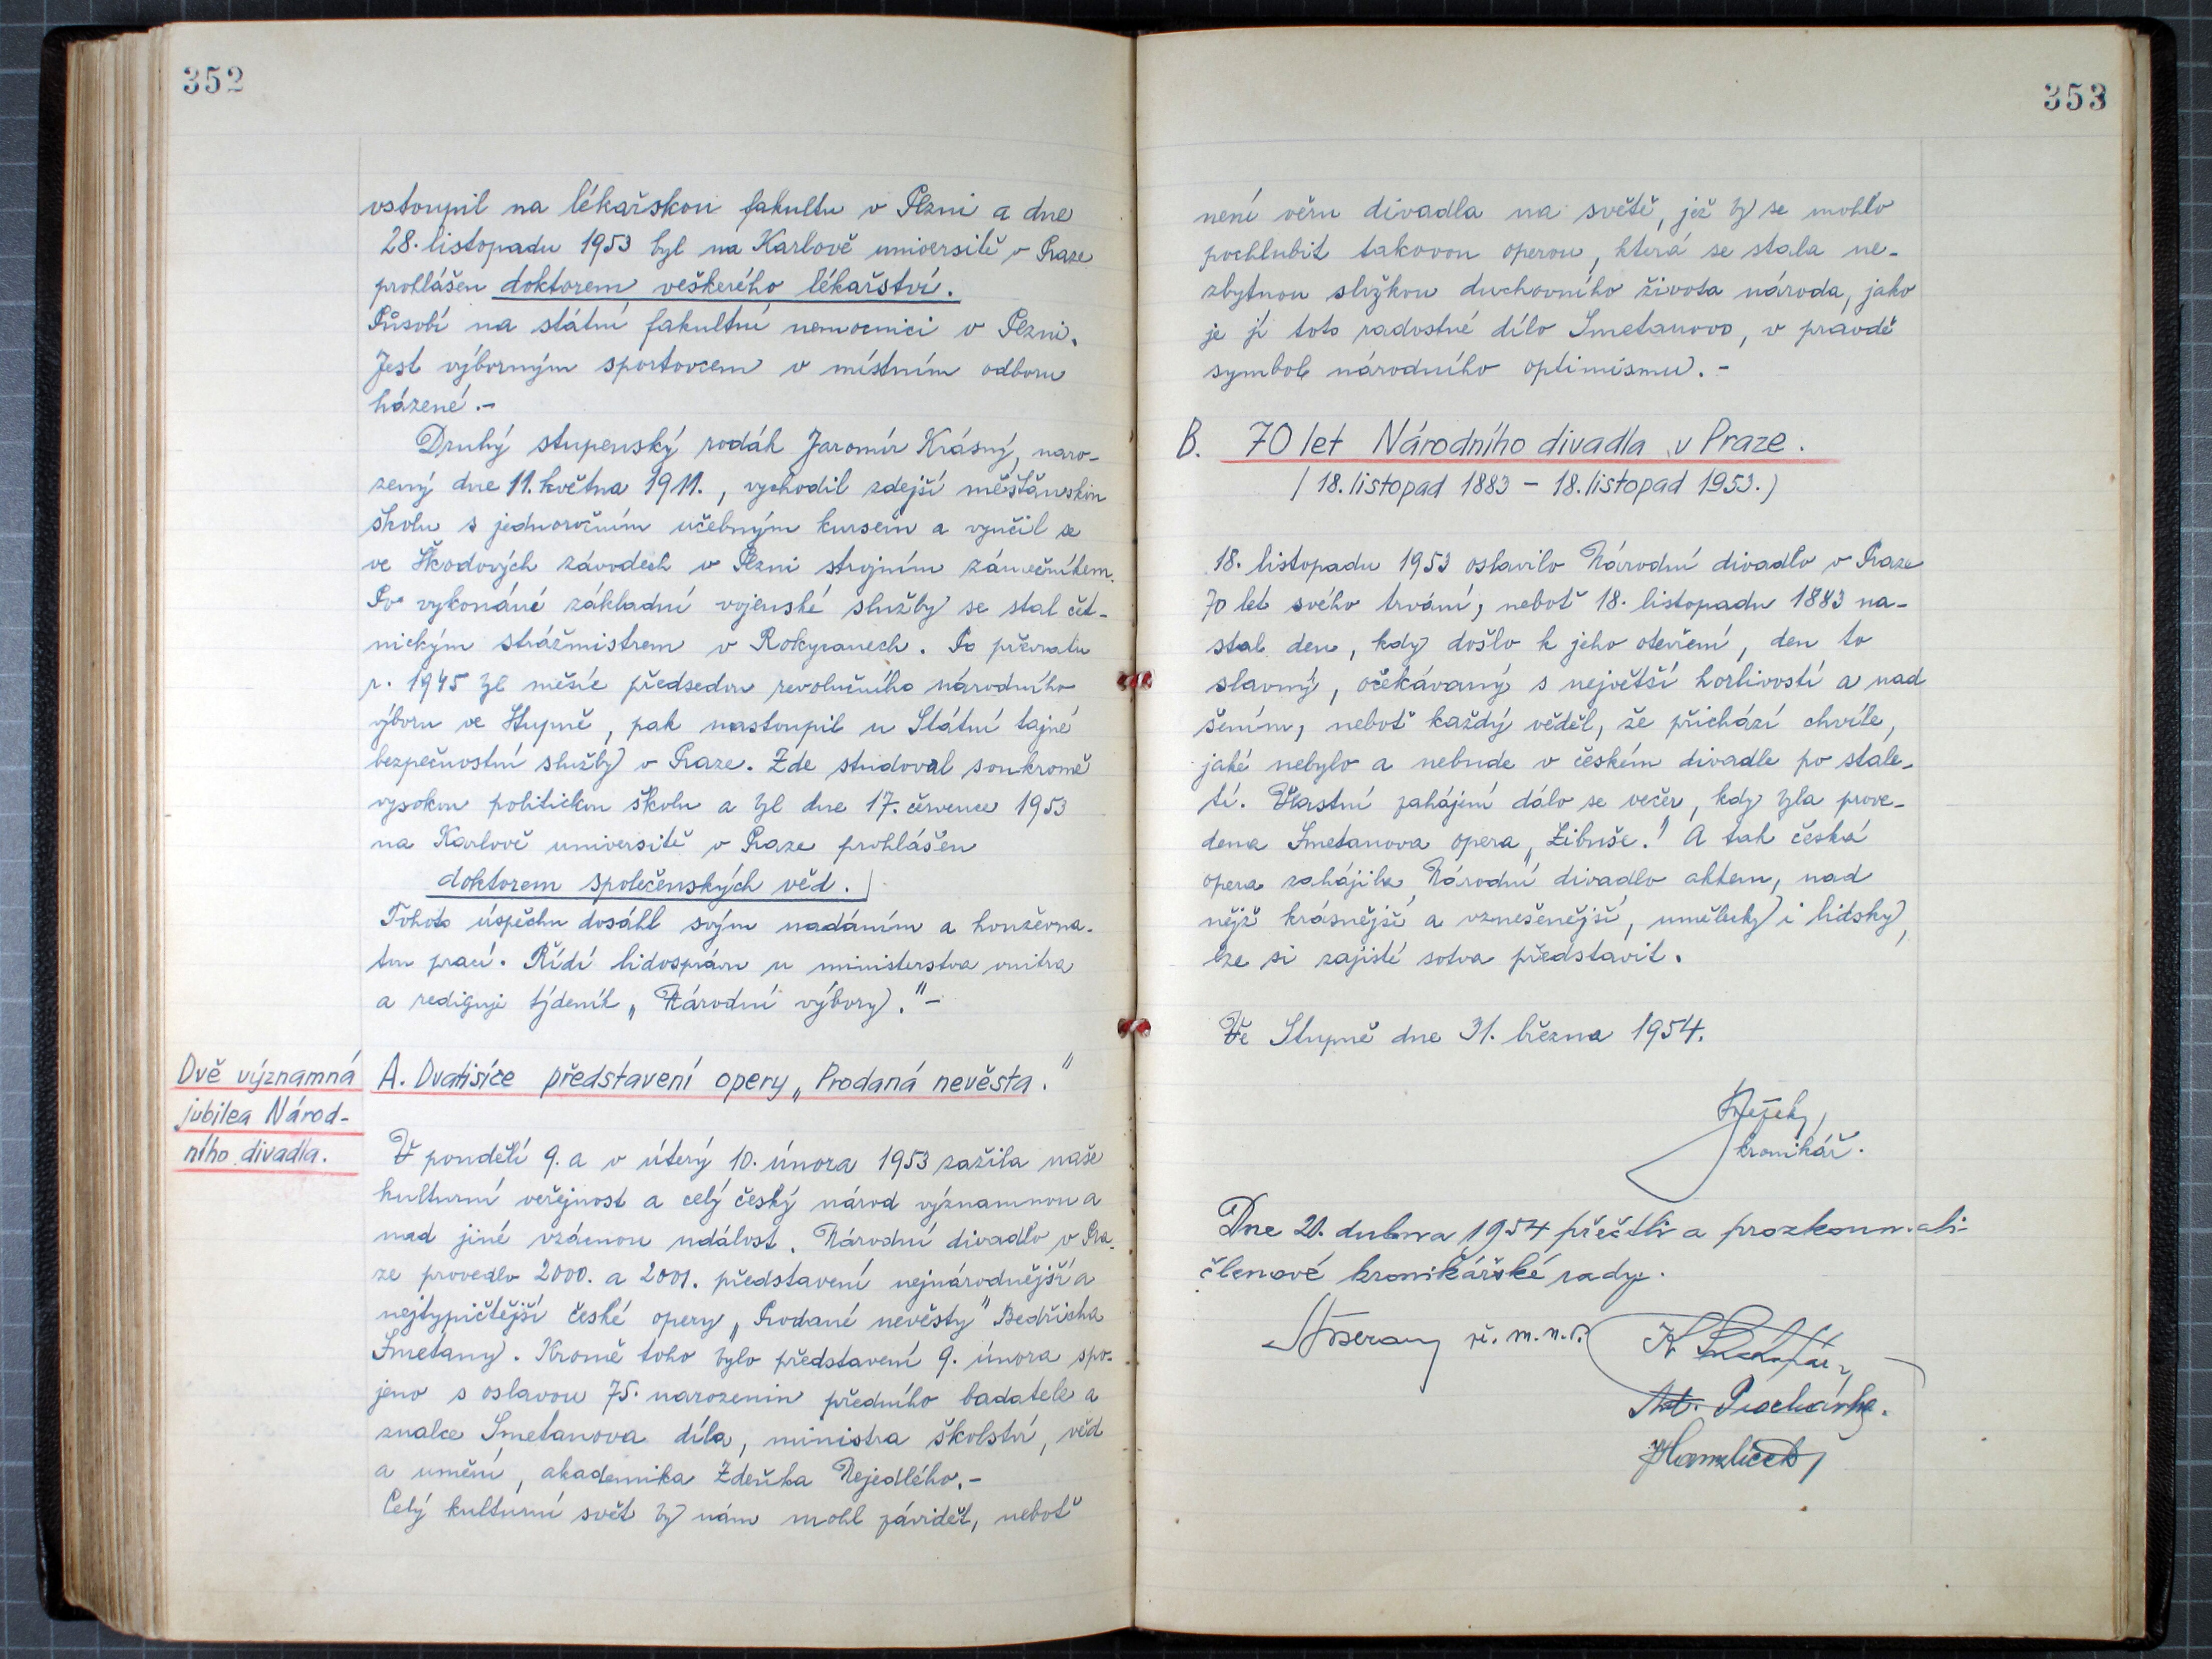 352
vstoupil na lékařskou fakultu v Plzni a dne
28. listopadu 1953 byl na Karlově universitě v Praze
prohlášen doktorem veškerého lékařství.
Působí na státní fakultní nemocnici v Plzni.
Jest výborným sportovcem v místním odboru
házené.-
Druhý stupenský rodák Jaromír Krásný, naro-
zený dne 11. května 1911., vychodil zdejší měšťanskou
školu s jednoročním učebným kursem a vyučil se
ve Škodových závodech v Plzni strojním zámečníkem.
Po vykonáné základní vojenské služby se stal čet-
nickým strážmistrem v Rokycanech. Po převratu
r. 1945 byl měsíc předsedou revolučního národního
výboru ve Stupně, pak nastoupil u Státní tajné
bezpečnostní služby v Praze. Zde studoval soukromě
vysokou politickou školu a byl dne 17. července 1953
na Karlově universitě v Praze prohlášen
doktorem společenských věd.
Tohoto úspěchu dosáhl svým nadáním a houževna-
tou prací. Řídí lidosprávu u ministerstva vnitra
a rediguje týdeník „Národní výbory."-
Dvě významná
jubilea Národ-
ního divadla.
A. Dvatisíce představení opery „Prodaná nevěsta."
V pondělí 9. a v úterý 10. února 1953 zažila naše
kulturní veřejnost a celý český národ významnou a
nad jiné vzácnou událost. Národní divadlo v Pra-
ze provedlo 2000. a 2001. představení nejnárodnější a
nejtypičtější české opery „Prodané nevěsty" Bedřicha
Smetany. Kromě toho bylo představení 9. února spo-
jeno s oslavou 75. narozenin předního badatele a
znalce Smetanova díla, ministra školství, věd
a umění, akademika Zdeňka Nejedlého.-
Celý kulturní svět by nám mohl závidět, neboť
353
není věru divadla na světě, jež by se mohlo
pochlubit takovou operou, která se stala ne-
zbytnou složkou duchovního života národa, jako
je jí toto radostné dílo Smetanovo, v pravdě
symbol národního optimismu.-
B. 70 let Národního divadla v Praze.
(18. listopad 1883 - 18. listopad 1953.)
18. listopadu 1953 oslavilo Národní divadlo v Praze
70 let svého trvání, neboť 18. listopadu 1883 na-
stal den, kdy došlo k jeho otevření, den to
slavný, očekávaný s největší horlivostí a nad
šením, neboť každý věděl, že přichází chvíle,
jaké nebylo a nebude v českém divadle po stale-
tí. Vlastní zahájení dálo se večer, kdy byla prove-
dena Smetanova opera „Libuše." A tak česká
opera zahájila Národní divadlo aktem, nad
nějž krásnější a vznešenější, umělecky i lidsky,
lze si zajisté sotva představit.
Ve Stupně dne 31. března 1954.
kronikář.
Dne 20. dubna 1954 přečtli a prozkoumali
členové kronikářské rady.
ř. m. n. v.
K.
Ant. Procházka.
Hamzlíček